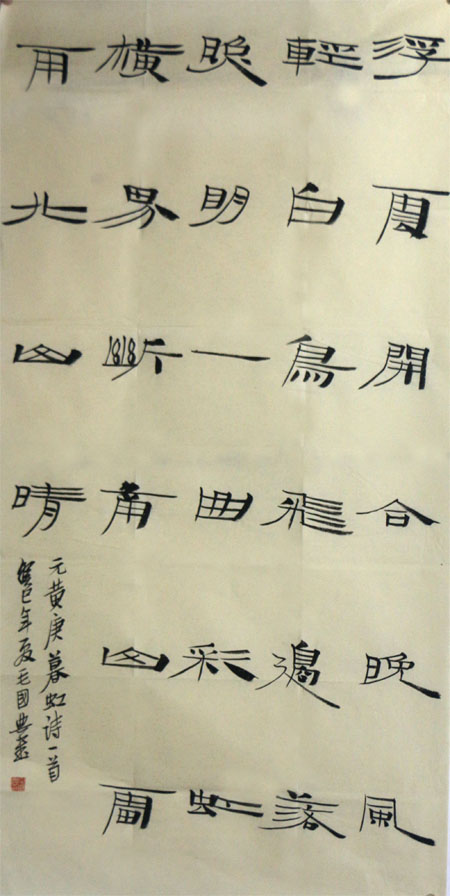 浮雲開合晚風
輕白鳥飛邊落
照明一曲彩虹
橫界斷南山雷
雨北山晴
元黄庚暮虹诗一首
癸巳年夏毛国典書